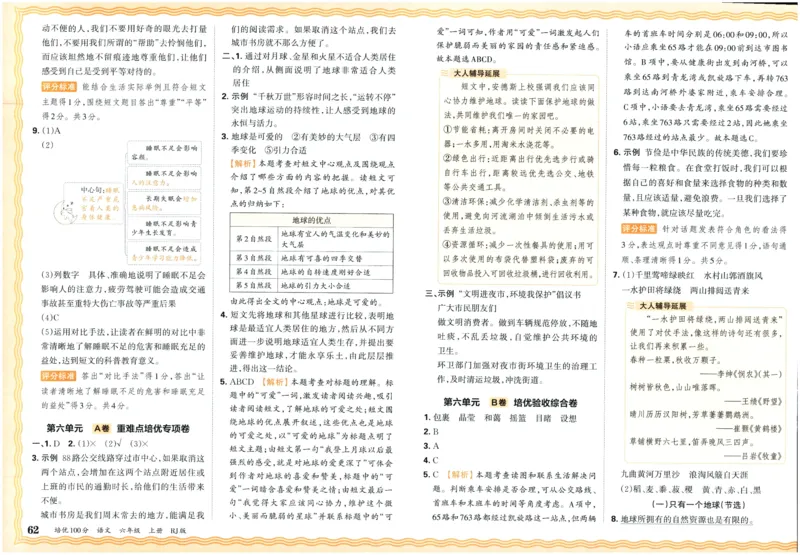 动不便的人,我们不要用好奇的眼光去打量
他们,不要用我们所谓的“帮助”去怜悯他们,
而应该坦然地不留痕迹地尊重他们,让他们
感受到自己是受到平等对待的。
评分标准 能结合生活实际举例且符合短文
主题得1分,围绕短文题目答出“尊重”“平等”
得2分。共3分。
9. (1)A
(2)
睡眠不足会影响
容颜。
睡眠不足会影响
人的注意力。
中心句:睡眠
不足严重危
害着人类的
身体健康。
长期失眠会增加
患病风险。
睡眠不足影响青
少年生长发育。
睡眠不足会造成
青少年学习能力降低。
(3)列数字 具体、准确地说明了睡眠不足会
影响人的注意力,疲劳驾驶可能会造成交通
事故甚至重特大伤亡事故等严重后果
(4)C
(5)运用对比手法,让读者在鲜明的对比中非
常清晰地了解睡眠不足的危害和睡眠充足的
益处,达到短文的科普教育意义。
评分标准 答出“对比手法”得1分,答出“让
读者清晰地了解睡眠不足的危害和睡眠充足
的益处”得3分。共4分。
第六单元 A卷 重难点培优专项卷
一、1. D 2. (1)× (2)√ (3)×
3. 示例 88路公交线路穿过市中心,如果取消这
两个站点,会增加在这两个站点附近居住或
上班的市民的通勤时长,给他们的生活带来
不便。
城市书房是我们周末常去的地方,能满足我
62 培优100分 语文 六年级 上册 RJ版
们的阅读需求。如果取消这个站点,我们去
城市书房就不那么方便了。
二、1. 通过对月球、金星和火星不适合人类居住
的介绍,从侧面说明了地球非常适合人类
居住
2. 示例 “千秋万世”形容时间之长,“运转不停”
突出地球运动的持续性,让人感受到地球的
永恒与活力。
3. 地球是可爱的 ②有美妙的大气层 ③有四
季变化 ⑤引力合适
[解析] 本题考查对短文中心观点及围绕观点
介绍了哪些方面的内容的把握。读短文可
知,第2~5自然段介绍了地球的优点,对其优
点的归纳如下:
地球的优点
第2自然段 地球有宜人的气温变化和美妙的
大气层
第3自然段 地球有可喜的四季交替
第4自然段 地球的自转速度刚好合适
第5自然段 地球的引力大小合适
由此得出全文的中心观点:地球是可爱的。
4. 短文先将地球和其他星球进行比较,表明地
球是最适宜人类居住的地方,然后从不同方
面进一步说明地球适宜人类生存,并提出要
妥善维护地球,才能永享乐土,由此层层推
进,得出这一结论。
5. ABCD [解析] 本题考查对标题的理解。标
题中的“可爱”一词,激发读者阅读兴趣,吸引
读者阅读短文,了解地球的可爱之处;短文围
绕地球的优点展开叙述,这些优点也是地球
的可爱之处,以“可爱的地球”为标题点明了
短文主题;由短文第一句“我登上月球以后最
强烈的感受,就是对地球的爱更深了”可体会
到作者对地球的喜爱和赞美,标题中的“可
爱”一词暗含喜爱和赞美之情;由短文最后一
句“我觉得大家应该同心协力,维护这个微
小、美丽而脆弱的星球”并联系标题中的“可
爱”一词可知,作者用“可爱”一词激发起人们
保护脆弱而美丽的家园的责任感和紧迫感。
故本题选ABCD。
大人辅导延展
短文中,安德斯上校强调我们应该同
心协力维护地球。读读下面保护地球的做
法,共同维护我们唯一的家园吧。
①节能省耗:离开房间时关闭不必要的电
器;一水多用,用淘米水浇花等。
②绿色出行:近距离出行优先选步行或骑
自行车出行,距离较远优先选公交、地铁
等公共交通工具。
③清洁环保:减少化学清洁剂、杀虫剂等的
使用,避免向河流湖泊中倾倒生活污水或
丢弃生活垃圾。
④资源循环:减少一次性餐具的使用;用可
以多次使用的布袋代替塑料袋;废弃的可
回收物品投入可回收垃圾桶,进行回收利用。
三、示例 “文明进夜市,环境我保护”倡议书
广大市民朋友们
做文明消费者。做到车辆规范停放,不随地
吐痰,不乱丢垃圾,自觉维护公共环境的
卫生。
环卫部门加强对夜市街环境卫生的治理工
作,及时清运垃圾,冲洗街道。
第六单元 B卷 培优验收综合卷
1. 包裹 晶莹 和蔼 摇篮 目睹 设想
2. B
3. A
4. C
5. C [解析] 本题考查读图和联系生活解决问
题。判断乘车安排是否合理,可从公交路线、
首班车和末班车的时间等角度考虑。A项中,
65路和763路都经过凯旋路这一站点,但两辆
车的首班车时间分别是06:00和09:00,所以
小语应乘坐65路才能在09:00前到达市图书
馆。B项中,妻从健康街出发到南河桥,可以
乘坐65路到青龙湾或凯旋路下车,再转763
路到达南河桥外婆家附近,乘车安排合理。
C项中,小语要去青龙湾,乘坐65路需要经过
6站,乘坐763路只需要经过2站,因此她乘坐
763路经过的站点最少。故本题选C。
6. 示例 节俭是中华民族的传统美德,我们要珍
惜每一粒粮食。在食堂打饭时,我们可以根
据自己的喜好和食量来选择食物的种类和数
量,且应该适量,避免浪费。一旦我们选择了
某种食物,就应该尽量吃完。
评分标准 针对话题发表符合角色的看法得
3分,表达观点时尊重不同意见得1分,语句通
顺、条理清晰得1分。共5分。
7. (1)千里莺啼绿映红 水村山郭酒旗风
一水护田将绿绕 两山排闼送青来
大人辅导延展
“一水护田将绿绕,两山排闼送青来”
使用了对仗手法,像这样的诗句还有很多,
让我们再来积累一些。
春种一粒粟,秋收万颗子。
——李绅《悯农》(其一)
树树皆秋色,山山唯落晖。
——王绩《野望》
晴川历历汉阳树,芳草萋萋鹦鹉洲。
——崔颢《黄鹤楼》
草铺横野六七里,笛弄晚风三四声。
——吕岩《牧童》
九曲黄河万里沙 浪淘风簸自天涯
(2)稻、麦、黍、菽、稷 黄、青、赤、白、黑
(一)只有一个地球(节选)
8. 地球所拥有的自然资源也是有限的。